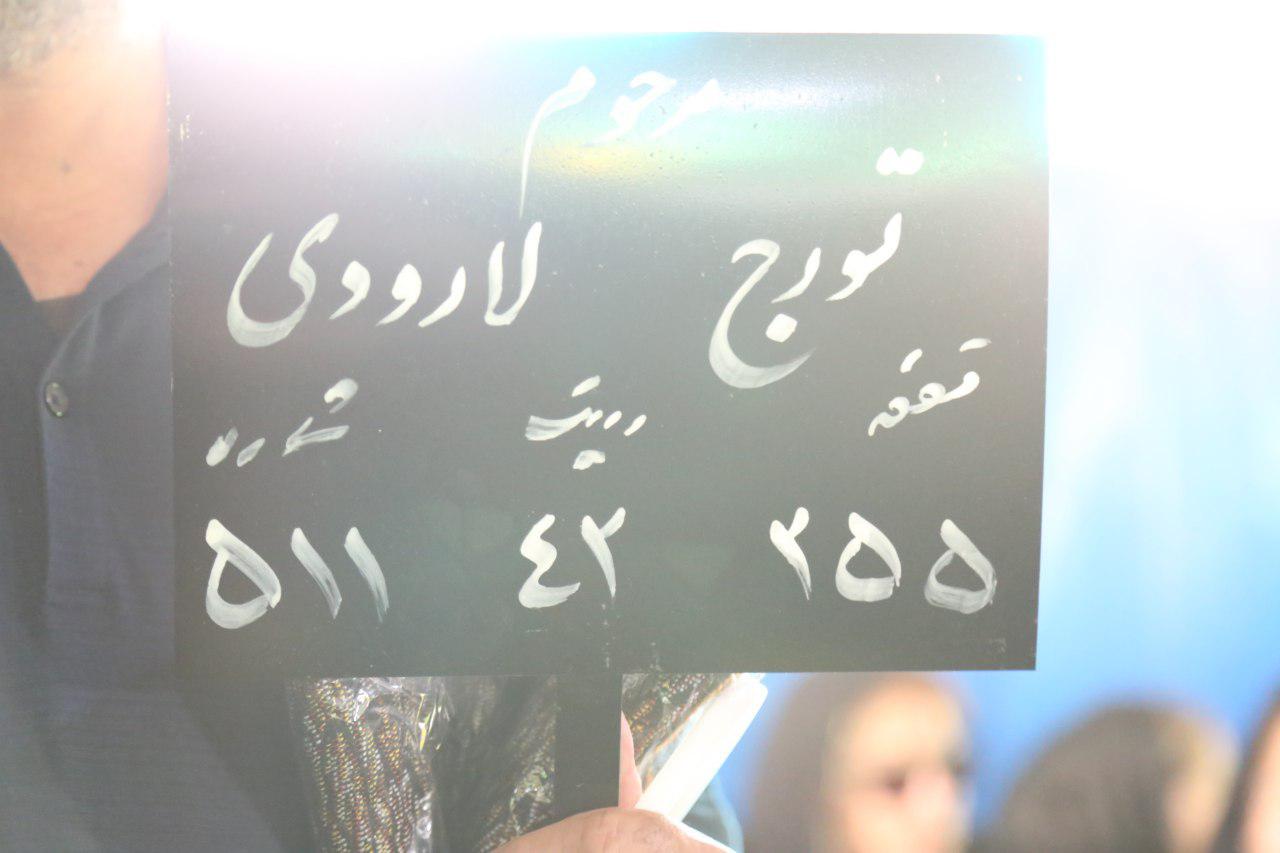 مرحوم
تورج لارودی
قطعه ردیف شماره
۲۵۵ ٤۲ ۵۱۱